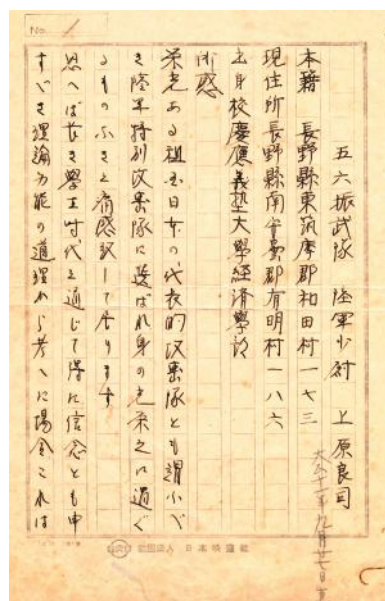 No. 1
五六振武隊 陸軍少尉 上原良司
本籍 長野縣東筑摩郡和田村一七三
現住所長野縣南安曇郡有明村一八六
出身校慶應義塾大學経済學部
所感
栄光ある祖国日本の代表的攻撃隊とも謂ふべ
き陸軍特別攻撃隊に選ばれ身の光栄之に過ぐ
るものなきと痛感致して居ります
思へば長き學生時代を通じて得た信念とも申
すべき理論万能の道理から考へた場合これは
社団法人 日本映畫社